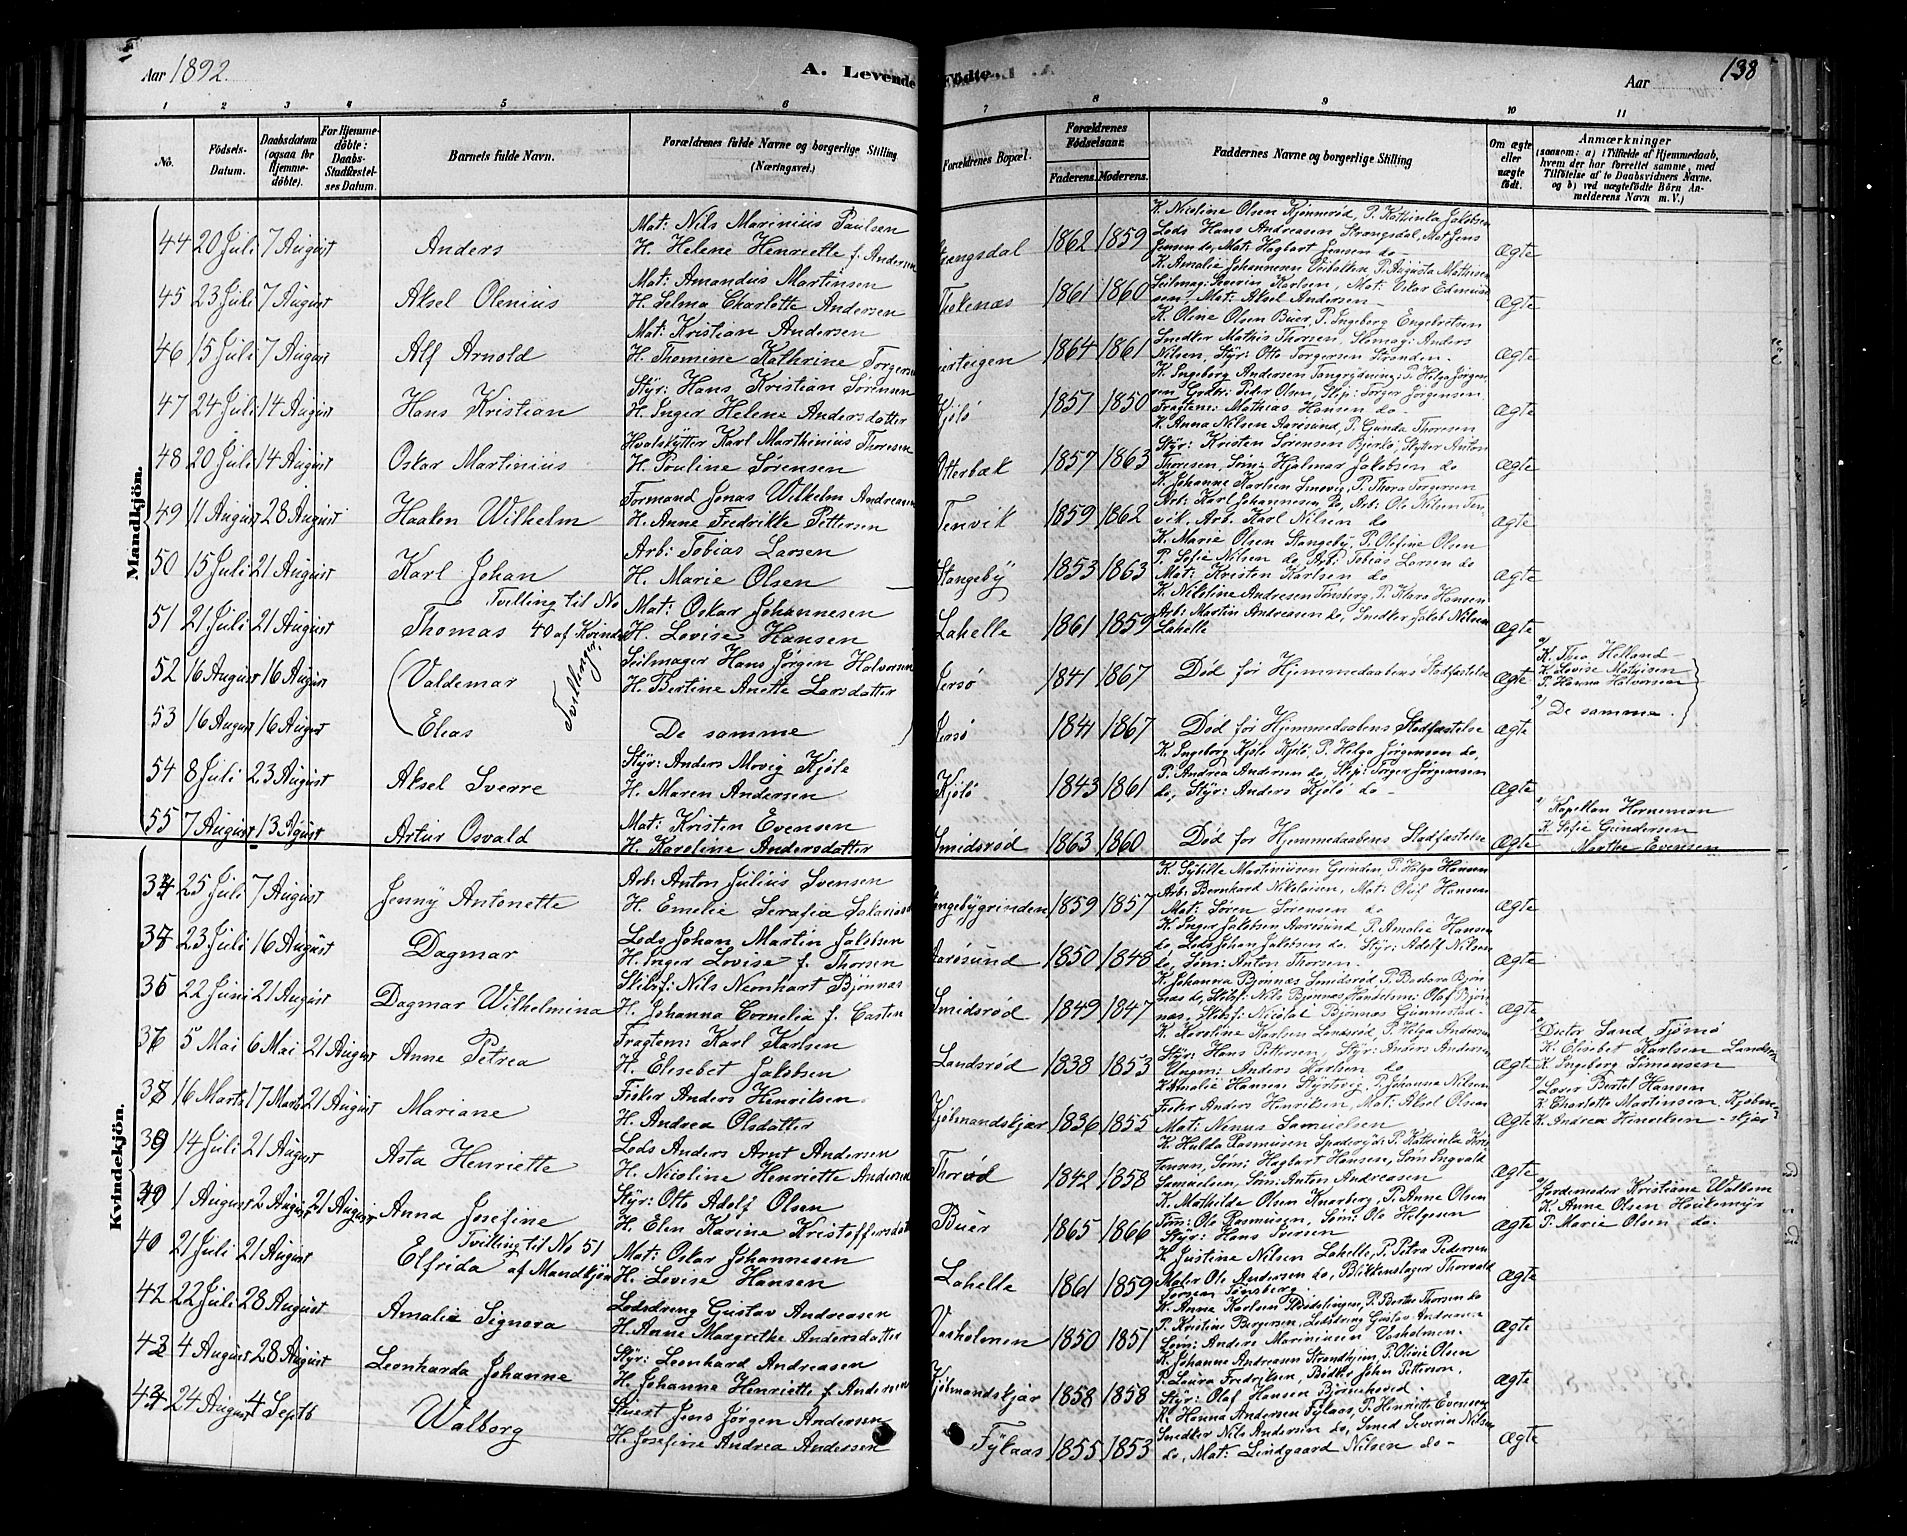 Aar 1892.
A. Levende
Fødte.
Aar
138
1 2 3 4 5 6
7 8 9 10 11
No.
Fødsels-Datum.
Daabsdatum (ogsaa for Hjemmedøbte).
For Hjemmedøbte: Daabs-Stadfæstelses Datum.
Barnets fulde Navn.
Forældrenes fulde Navne og borgerlige Stilling (Næringsvei.)
Forældrenes Bopæl.
Forældrenes Fødselsaar.
Faderens. Moderens.
Faddernes Navne og borgerlige Stilling
Om ægte eller uægte født.
Anmærkninger
(saasom: a) i Tilfælde af Hjemmedaab, hvem der har forrettet samme, med Tilføielse af to Daabsvidners Navne. og b) ved uægtefødte Børn Anmelderens Navn m. V.)
Mandkjön.
44 20 Juli 7 August Anders
Mat: Nils Marinius Paulsen
H. Helene Henriette f. Andersen
1862 1859
K. Nicoline Olsen Kjønnerød, P. Kathinka Jakobsen
Lods Hans Andreasen Strængsdal, Mat Jens
Jensen do, Mat: Hagbart Jensen do
Ægte
45 23 Juli 7 August Aksel Olenius
Mat: Amandus Martinsen
H. Selma Charlotte Andersen
1861 1860
Seilmag: Severin Karlsen, Mat: Oskar Edmund
sen, Mat: Aksel Andersen
Ægte
46 15 Juli 7 August Alf Arnold
Mat: Kristian Andersen
H. Thomine Kathrine Torgersen
1864 1861
K. Oline Olsen Buer, P. Ingeborg Engebretsen
Snedker Mathis Thorsen, Slemag: Anders
Nilsen, Styr: Otto Torgersen Stranden
Ægte
47 24 Juli 14 August Hans Kristian
Styr: Hans Kristian Sørensen
H. Inger Helene Andersdatter
Kjølø 1857 1850
Peder Olsen, Skip: Torger Jørgensen
Fragtem: Mathias Hansen do
Ægte
48 20 Juli 14 August Oskar Martinius
Hvalskytter Karl Marthinius Thoresen
H. Pauline Sørensen
Otterbæk 1857 1863
K. Anna Nilsen Aarøsund, P. Gunda Thoresen
Styr: Kristen Sørensen Bjerkø, Skytter Anton
Thoresen, Søm: Hjalmar Jakobsen do
Ægte
49 11 August 28 August Haaken Wilhelm
Formand Jonas Wilhelm Andreasen
H. Anne Fredrikke Pettersen
Tenvik 1859 1862
Arb: Karl Johannesen do, Arb: Ole Nilsen Ten
vik. Arb. Karl Nilsen do
Ægte
50 15 Juli 21 August Karl Johan
Arb: Tobias Larsen
H. Marie Olsen
Stangeby 1853 1863
K. Marie Olsen Stangeby, P. Olefine Olsen
P. Sofie Nilsen do Arb: Tobias Larsen do
Mat: Kristen Karlsen do
Ægte
51 21 Juli 21 August Thomas
Tvilling til No
40 af Kvindek
Mat: Oskar Johannesen
H. Lovise Hansen
Lahelle 1861 1859
K. Nilstine Andreasen Tønsberg, P. Klara Hansen
Arb: Martin Andreasen do, Snedker Jakob Nilsen
Lahelle
Ægte
52 16 August 16 August Valdemar
Tvillinger
Seilmager Hans Jørgen Halvorsen
H. Bertine Anette Larsdatter
1841 1867
Død før Hjemmedaabens Stadfæstelse
Ægte
a) K. Thea Helland
K. Lovise Mathisen
P. Hanna Halvorsen
53 16 August 16 August Elias
De samme
1841 1867
Død før Hjemmedaabens Stadfæstelse
Ægte
a) De samme.
54 8 Juli 23 August Aksel Sverre
Styr: Anders Movig Kjøle
H. Maren Andersen
Kjølø 1843 1861
K. Ingeborg Kjøle Kjølø, P. Helga Jørgensen do,
P. Andrea Andersen do, Skip: Torger Jørgensen
do, Styr: Anders Kjølø do
Ægte
55 7 August 13 Agust Artur Osvald
Mat: Kristen Evensen
H. Karoline Andersdatter
Smidsrød 1863 1860
Død før Hjemmedaabens Stadfæstelse
Ægte
a) Kapellan Horneman
K. Sofie Gundersen
Marthe Evensen
Kvindekjön.
25 Juli 7 August Jenny Antonette
Arb: Anton Julius Svensen
H. Emelie Serafia
1859 1857
K. Sybille Martiniusen Grinden, P. Helga Hansen
Arb: Bernhard Nikolaisen, Mat: Oluf Hansen
Mat: Søren Sørensen do
Ægte
23 Juli 16 August Dagmar
Lods Johan Martin Jakobsen
H. Inger Lovise f. Thorsen
Aarøsund 1850 1848
K. Inger Jakobsen Aarøsund, P. Amalie Hansen
do, Lods Johan Jakobsen do, Styr: Adolf Nilsen
do, Søm: Anton Thorsen
Ægte
36 22 Juni 21 August Dagmar Wilhelmina
Skibsf: Nils Neonhart Bjønnes
H. Johanna Cornelia f. Casten
Smidsrød 1849 1847
K. Johanna Bjønnæs Smidsrød, P. Barbara Bjøn
næs do, Skibsf: Nils Bjønnæs Handelsm: Olaf Bjøn
næs, Skibsf: Nicolai Bjønnæs Gunnestad
Ægte
5 Mai 6 Mai 21 August Anne Petrea
Fragtem: Karl Karlsen
H. Elisebet Jakobsen
Landsrød 1838 1853
K. Karoline Karlsen Landsrød, P. Helga Andersen
Styr: Hans Pettersen, Styr: Anders Andersen
Ungm: Anders Karlsen do
Ægte
a) Doctor Sand Tjømø
K. Elisebet Karlsen Landsrø
K. Ingeborg Simonsen
16 Marts 17 Marts 21 August Mariane
Fisker Anders Henriksen
H. Andrea Olsdatter
Kjøbmandskjær 1836 1855
K. Amalie Hansen Styrtsvig, P. Johanna Nilsen
Fisker Anders Henriksen, Mat: Aksel Olsen
Mat: Nonus Samuelsen
Ægte
a) Lærer Bertel Hansen
K. Charlotte Martinsen, Kjøbm-
K. Andrea Henriksen - skjær
39 14 Juli 21 August Asta Henriette
Lods Anders Arnt Andersen
H. Nicoline Henriette Andersen
Thorød 1842 1858
K. Hulda Rasmusen Sposerød, P. Kathinka Kris
tensen, Søm: Hagbart Hansen, Søm Ingvald
Samuelsen, Søm: Anton Andreasen
Ægte
1 August 2 August 21 August Anna Josefine
Styr: Otto Adolf Olsen
H. Elen Karine Kristoffersdatt
Buer 1865 1866
K. Mathilde Olsen Knarberg, P. Anne Olsen
Tøm: Ole Rasmusen, Søm: Ole Helgesen
Styr: Hans Iversen
Ægte
a) Jordemoder Kristiane Walbom
K. Anne Olsen Houkemyr
P. Marie Olsen do.
40 21 Juli 21 August Elfrida
Tvilling til No 51
af Mandkjøn
Mat: Oskar Johannesen
H. Lovise Hansen
Lahelle 1861 1859
K. Justine Nilsen Lahelle, P. Petra Pedersen
Maler Ole Andersen do, Blikkenslager Thorvald
Tønsberg
Ægte
22 Juli 28 August Amalie Signora
Lodsdreng Gustav Andreasen
H. Anne Margrethe Andersdatter
Vasholmen 1850 1851
P. Kristine Børgersen, Lodsdreng Gustav Andreasen
Søm: Anders Mariniusen Vasholmen.
Ægte
4 August 28 August Leonharda Johanne
Styr: Leonhard Andreasen
H. Johanne Henriette f. Andersen
Kjøbmandskjær 1858 1858
K. Johanne Andreasen Strandhjem, P. Olivie Olsen
P. Laura Fredriksen, Bødker Johan Petterson,
Styr: Olaf Hansen Bjørnehoved
Ægte
24 August 4 Septb Walborg
Stuert Jens Jørgen Andersen
H. Josefine Andrea Andersen
Fylaas 1855 1853
K. Hanna Andersen Fylaas, P. Henriette Evensen
Snedker Nils Andersen do, Smed Severin Nilsen
do, Mat: Lindgaard Nilsen do
Ægte